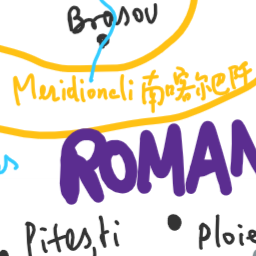 Brosov
Meridionali 南喀尔巴阡
ROMAN
Pitești
Ploie